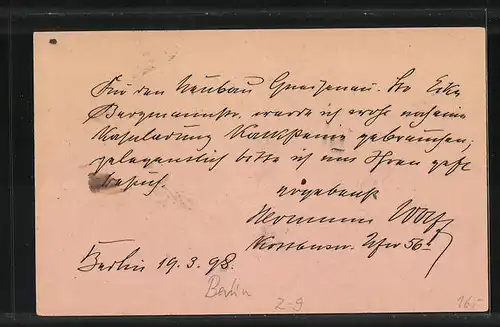 Für den Neubau Gneisenau Str Ecke
Bergmannstr. werde ich wohl noch eine
Kahnladung Kalksteine gebrauchen,
gelegentlich bitte ich um Ihren gefl
Besuch.
ergebenst
Hermann Wolf
Kottbuser Ufer 56
Berlin 19.3.98.
Berlin
2-9
16.-